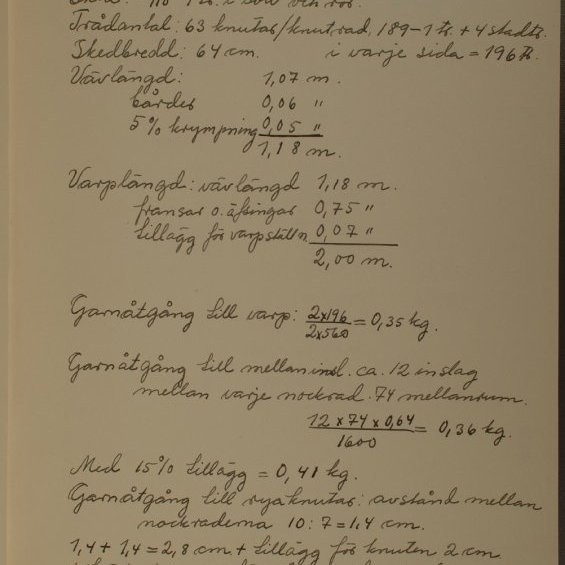 i solv och rör.
Trådantal: 63 knutar/knutrad, 189-1 tr. + 4 stadtr.
Skedbredd: 64 cm. i varje sida = 196 tr.
Vävlängd: 1,07 m.
bårder 0,06 "
5% krympning 0,05 "
1,18 m.
Varplängd: vävlängd 1,18 m.
fransar o. äfsingar 0,75 "
tillägg för varpställn 0,07 "
2,00 m.
Garnåtgång till varp: 2x196 / 2x560 = 0,35 kg.
Garnåtgång till mellaninsl. ca. 12 inslag
mellan varje nockrad. 74 mellanrum.
12 x 74 x 0,64 / 1600 = 0,36 kg.
Med 15% tillägg = 0,41 kg.
Garnåtgång till ryaknutar: avstånd mellan
nockraderna 10:7 = 1,4 cm.
1,4 + 1,4 = 2,8 cm + tillägg för knuten 2 cm